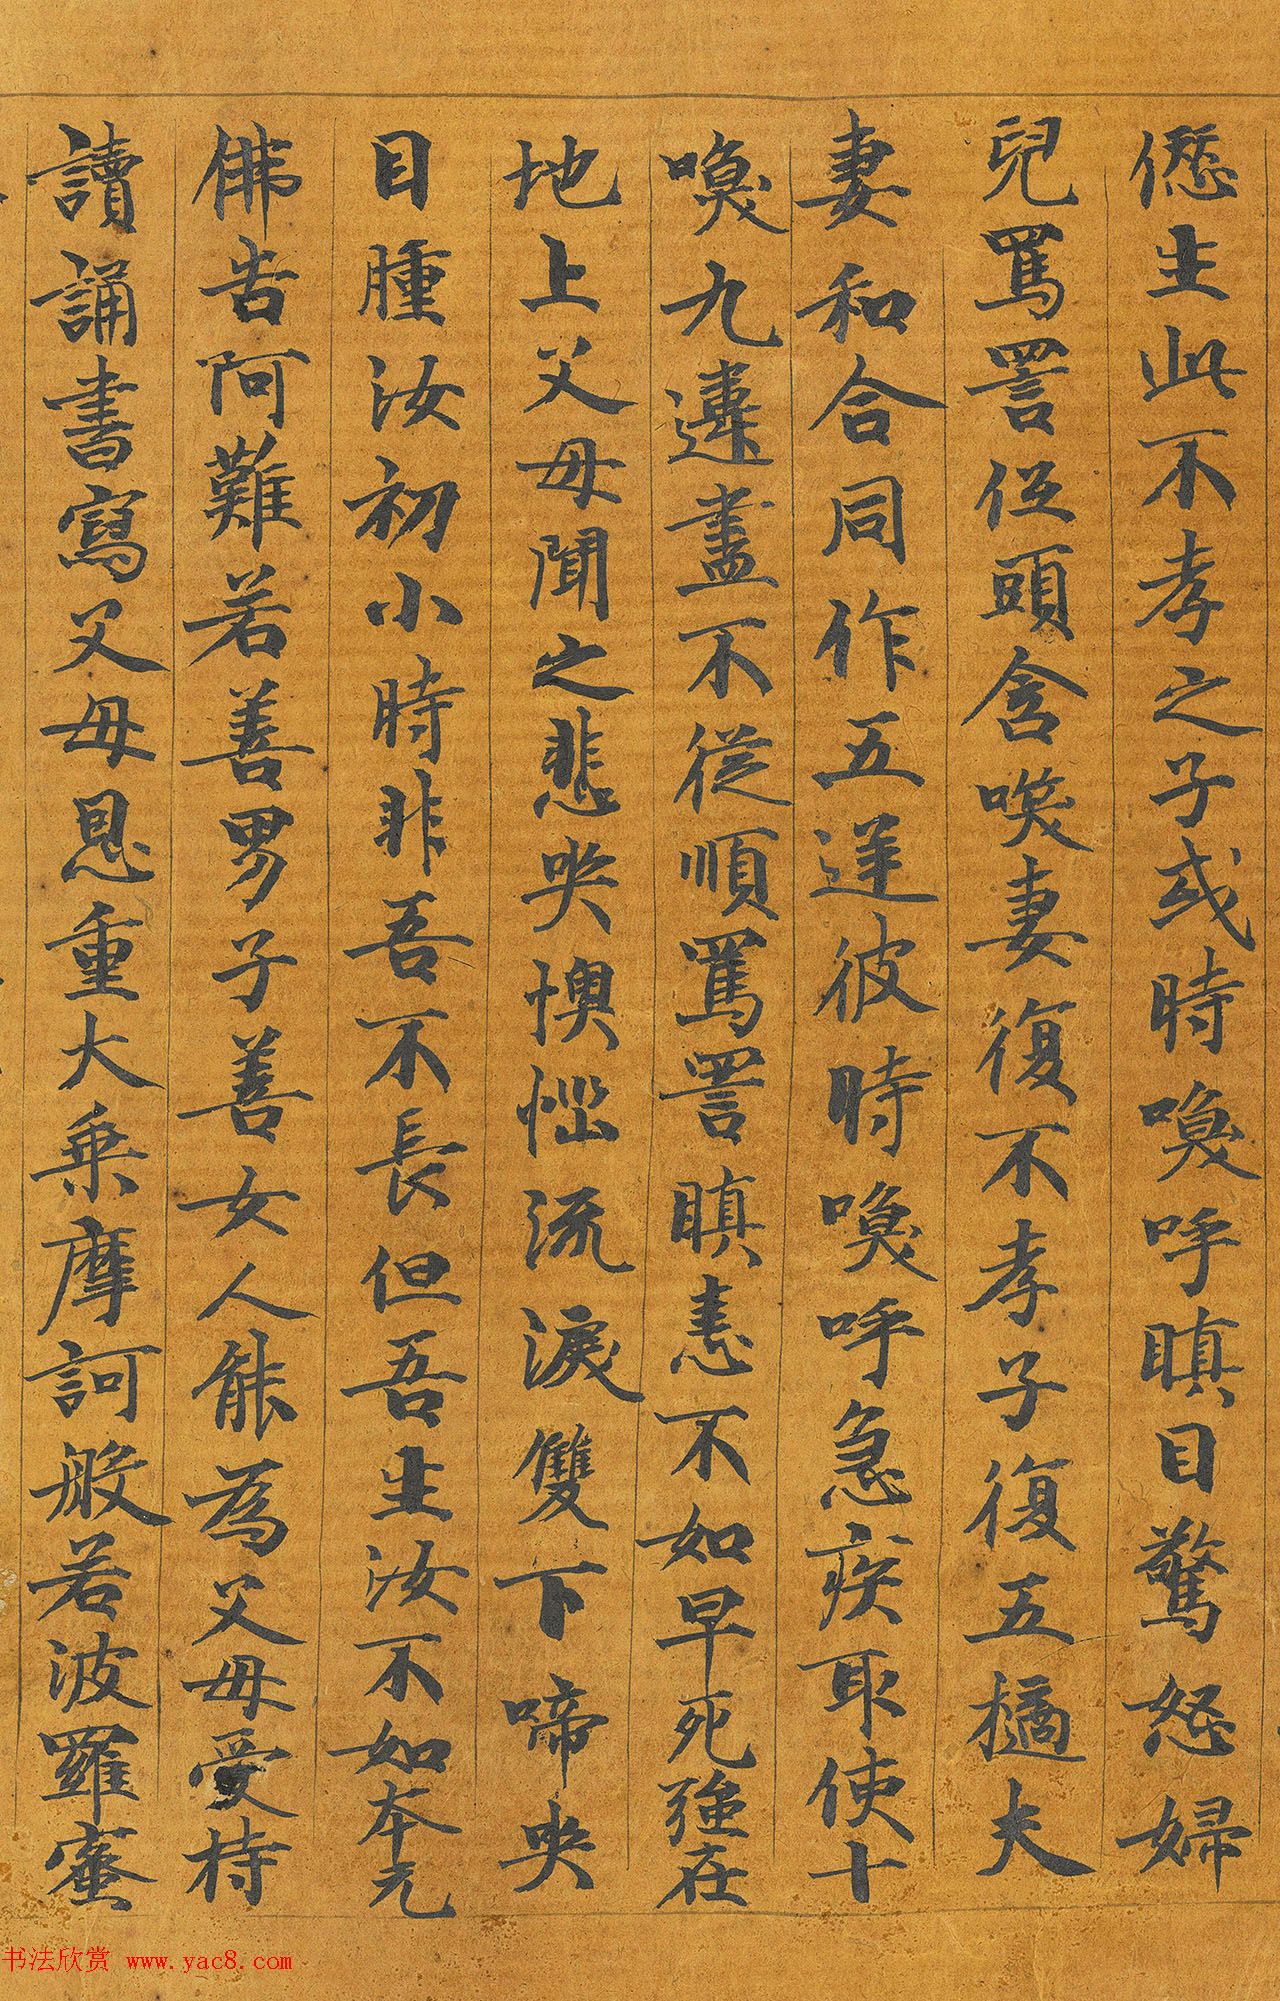 僽生此不孝之子或時喚呼瞋目驚怒婦
兒罵詈伍頭含唉妻復不孝子復五摘夫
妻和合同作五逆彼時喚呼急疾取使十
喚九違盡不從順罵詈瞋恚不如早死強在
地上父母聞之悲哭懊惱流淚雙下啼哭
目腫汝初小時非吾不長但吾生汝不如本无
佛告阿難若善男子善女人能為父母受持
讀誦書寫父母恩重大乘摩訶般若波羅蜜
书法欣赏 www.yac8.com